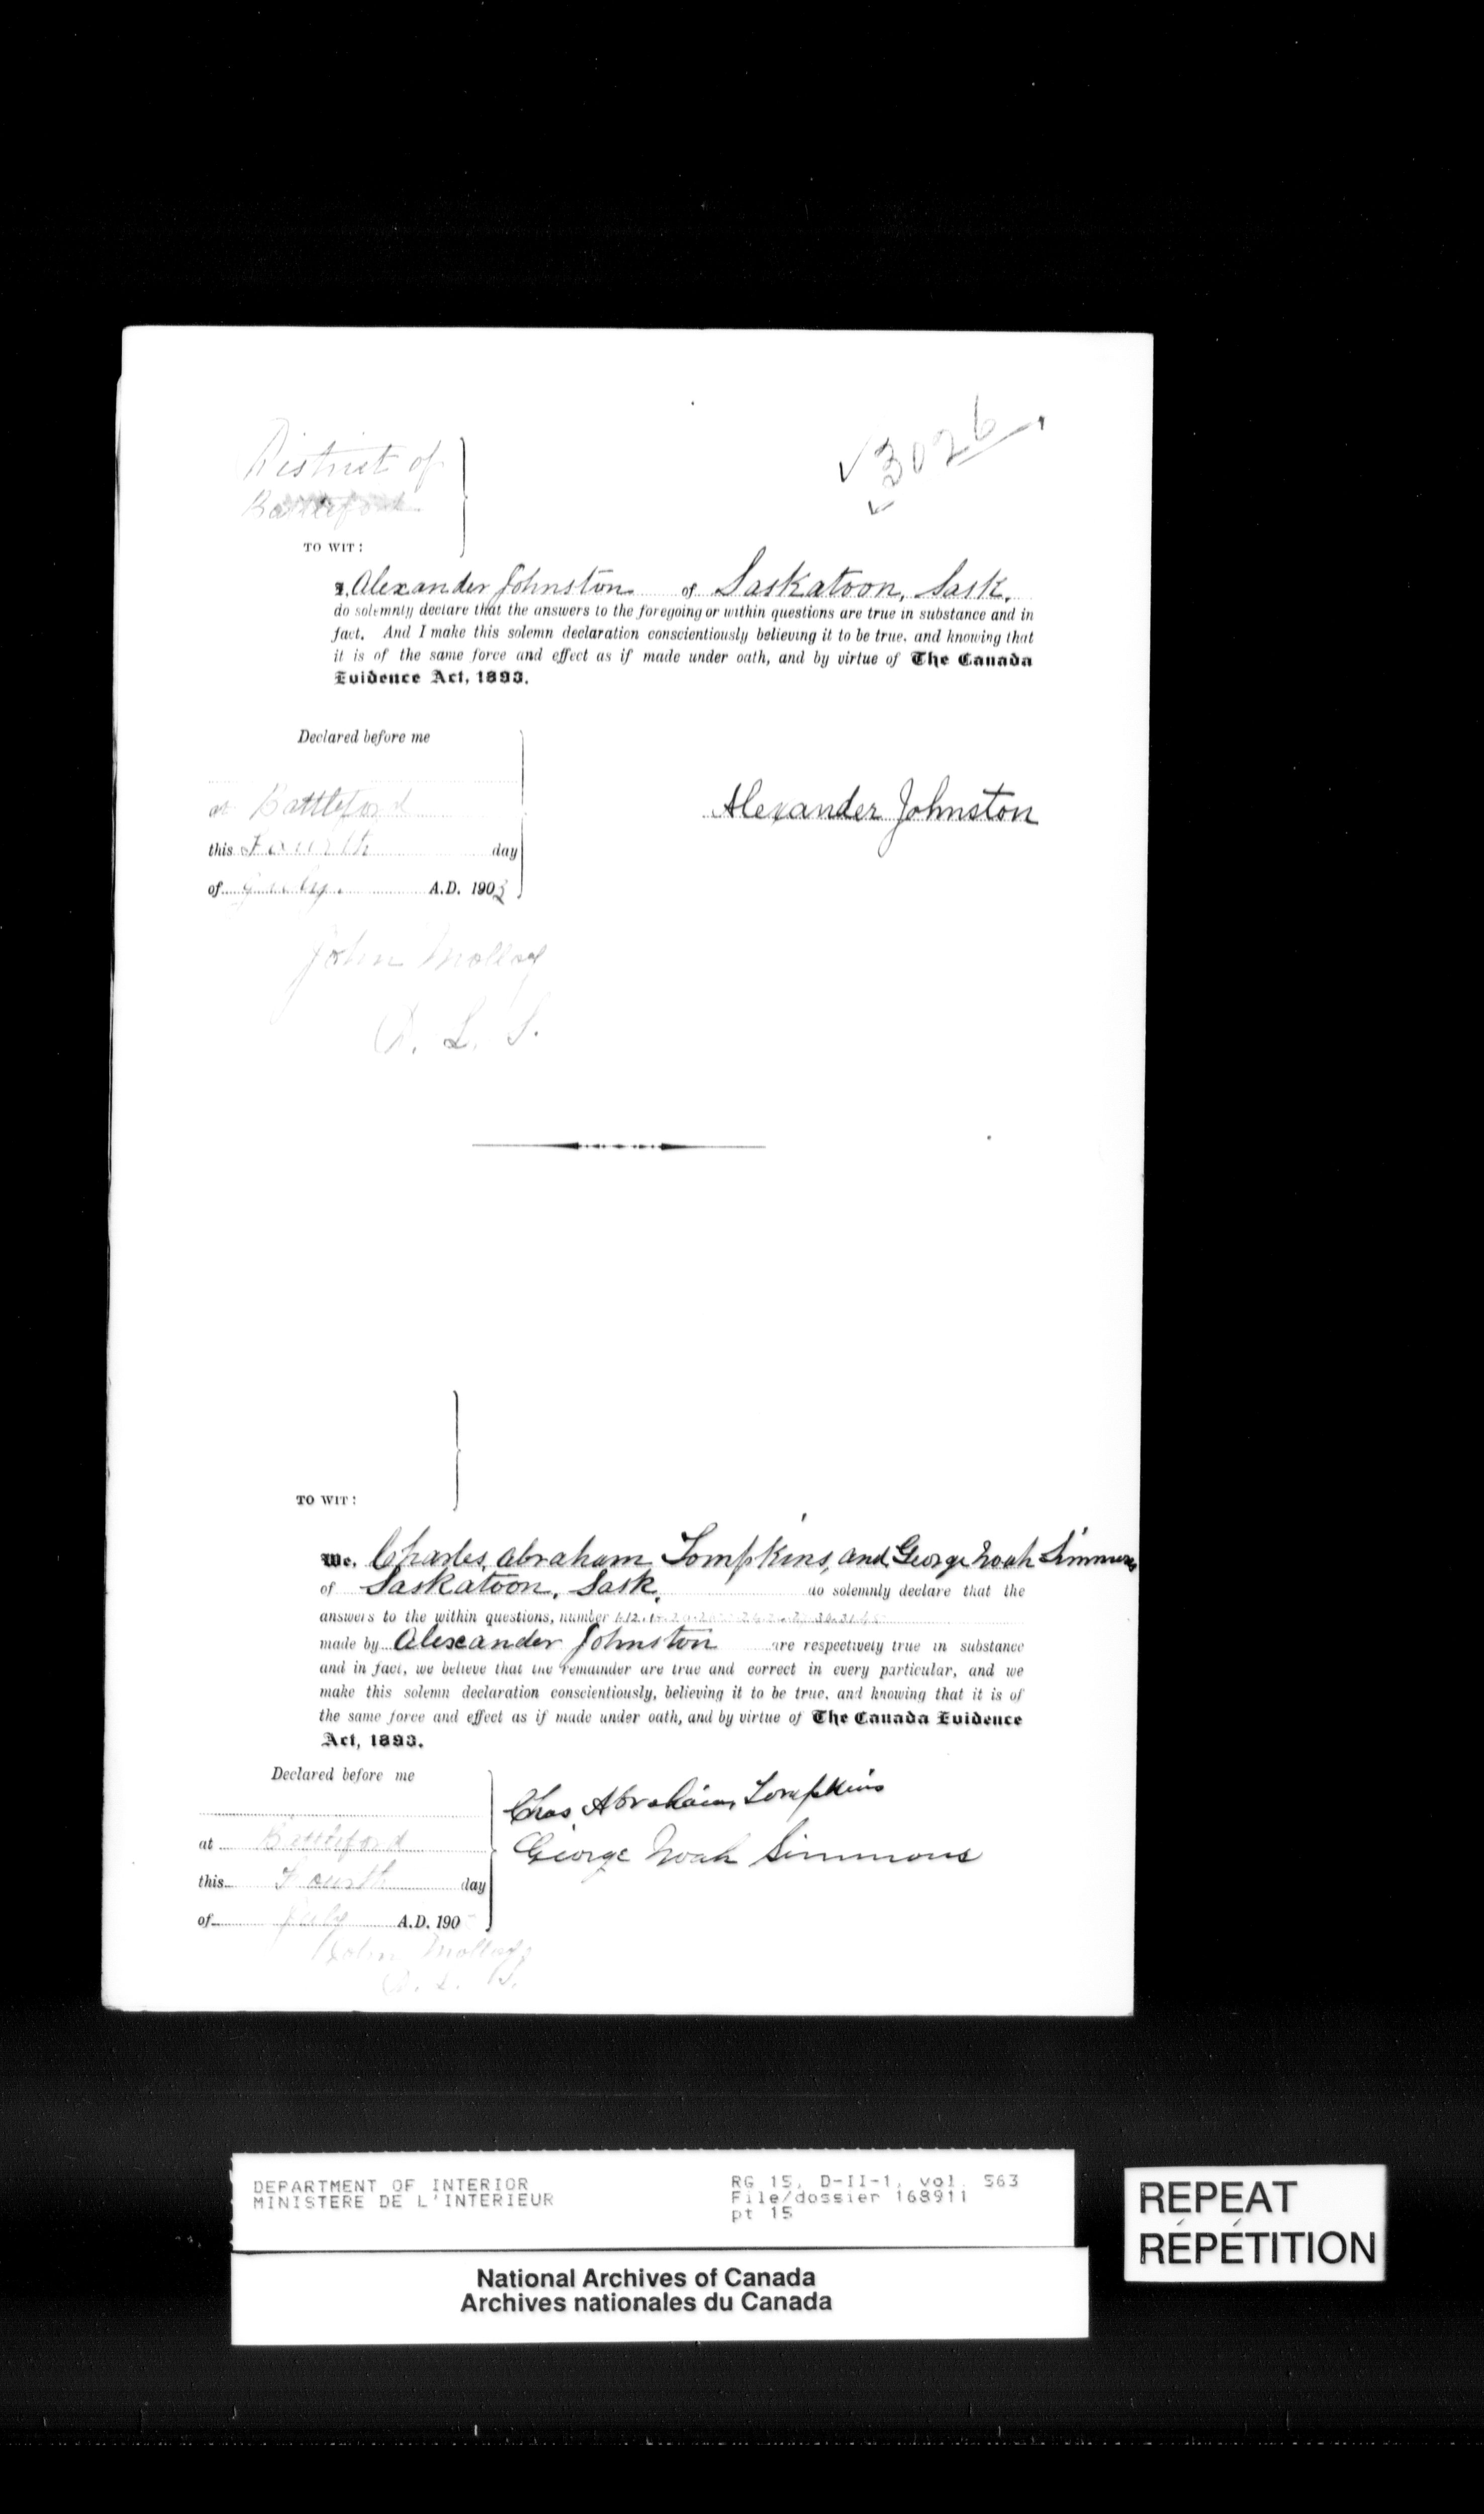 3026
District of
Battleford
TO WIT:
I, Alexander Johnston of Saskatoon, Sask.
do solemnly declare that the answers to the foregoing or within questions are true in substance and in
fact. And I make this solemn declaration conscientiously believing it to be true, and knowing that
it is of the same force and effect as if made under oath, and by virtue of The Canada
Evidence Act, 1893.
Declared before me
at Battleford
this Fourth day
of July. A.D. 1903
Alexander Johnston
John Molloy
D. L. S.
TO WIT:
We, Charles Abraham Tompkins, and George Noah Simmons
of Saskatoon, Sask. do solemnly declare that the
answers to the within questions, number
made by Alexander Johnston are respectively true in substance
and in fact, we believe that the remainder are true and correct in every particular, and we
make this solemn declaration conscientiously, believing it to be true, and knowing that it is of
the same force and effect as if made under oath, and by virtue of The Canada Evidence
Act, 1893.
Declared before me
Chas. Abraham Tompkins
at Battleford
George Noah Simmons
this Fourth day
of July A.D. 190
John Molloy
D. L. S.
DEPARTMENT OF INTERIOR
MINISTERE DE L'INTERIEUR
RG 15, D-II-1, vol. 563
File/dossier 168911
pt 15
National Archives of Canada
Archives nationales du Canada
REPEAT
RÉPÉTITION